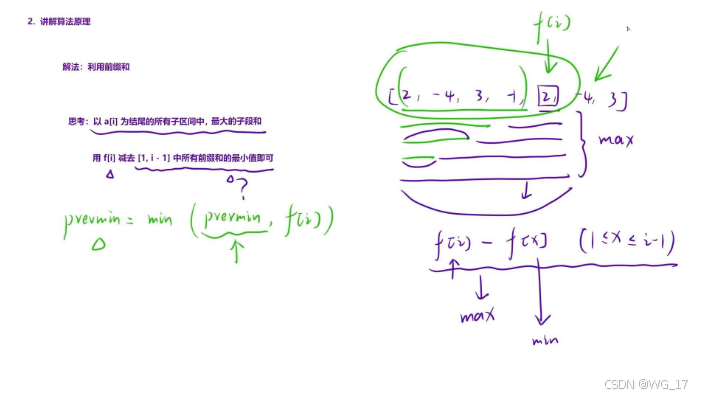 2. 讲解算法原理
解法：利用前缀和
思考：以 a[i] 为结尾的所有子区间中，最大的子段和
用 f[i] 减去 [1, i - 1] 中所有前缀和的最小值即可
?
prevmin = min (prevmin, f[i])
f[i]
[2, -4, 3, -1, 2, -4, 3]
max
f[i] - f[x] (1≤x≤i-1)
max
min
CSDN @WG_17